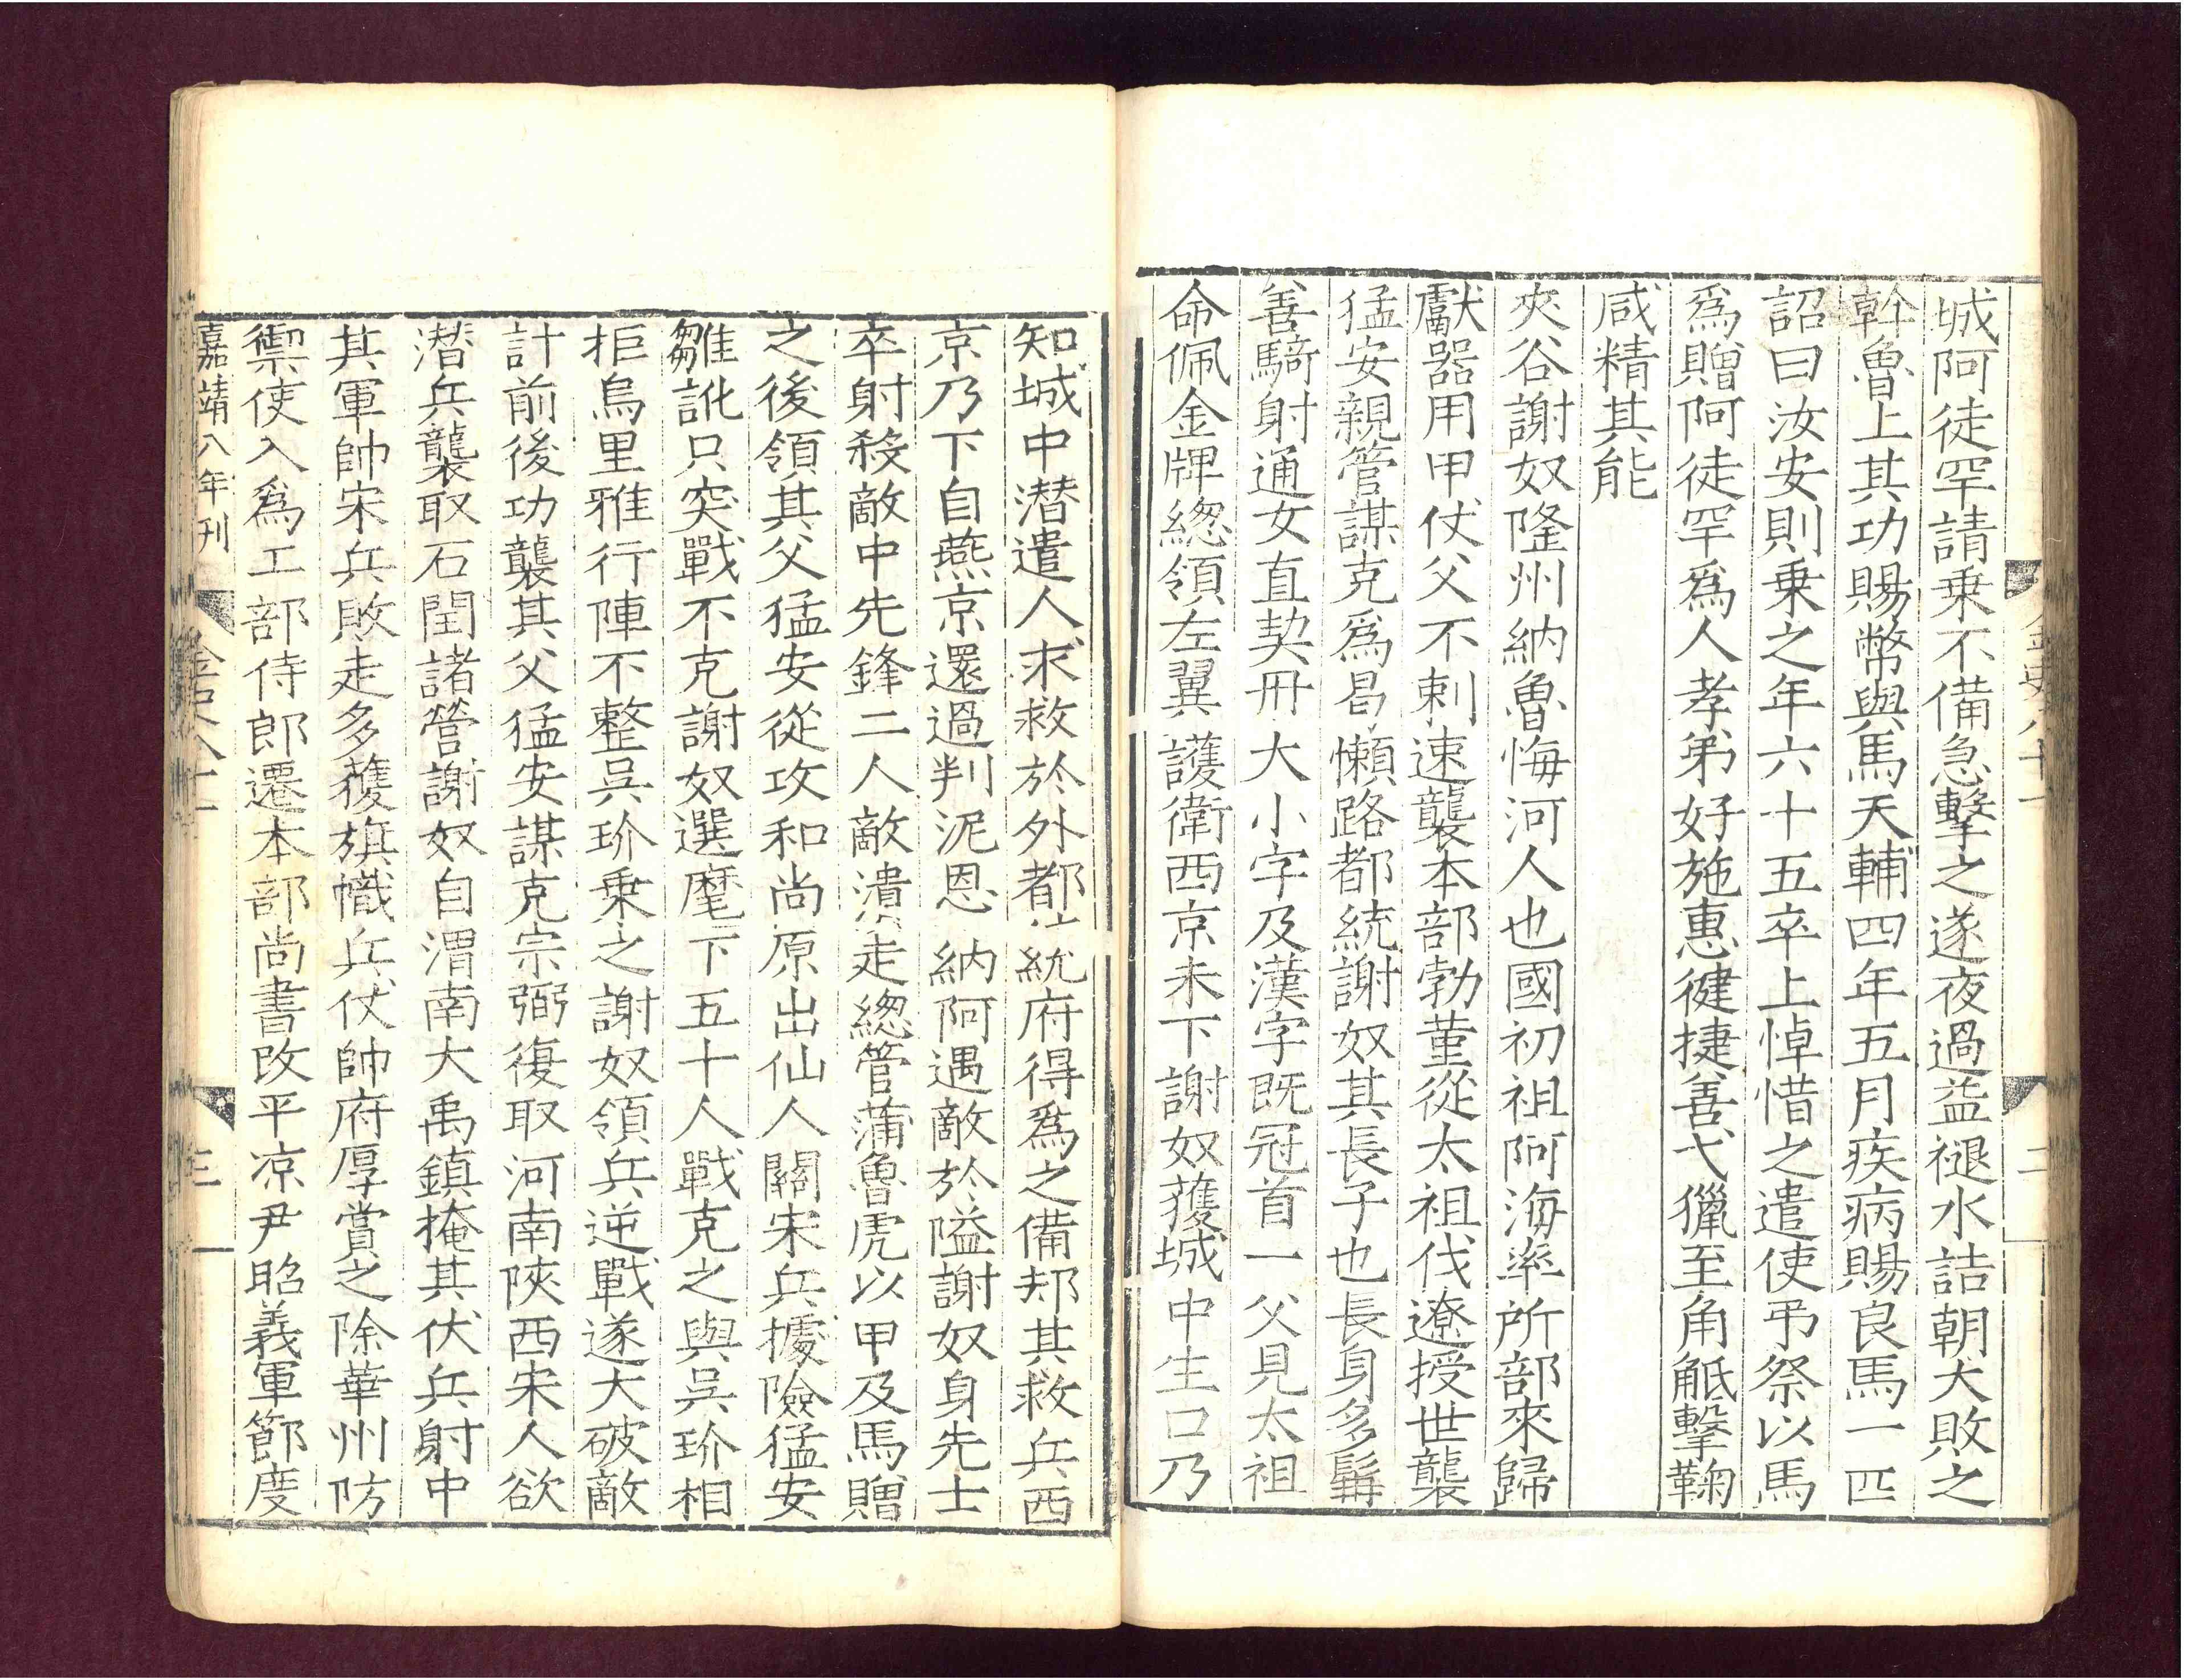 城阿徒罕請乗不備急擊之遂夜過益褪水詰朝大敗之
斡魯上其功賜幣與馬天輔四年五月疾病賜良馬一匹
詔曰汝安則乗之年六十五卒上悼惜之遣使弔祭以馬
爲贈阿徒罕爲人孝弟好施惠健捷善弋獵至角觝擊鞠
咸精其能
夾谷謝奴隆州納魯悔河人也國初祖阿海率所部來歸
獻器用甲仗父不剌速襲本部勃菫從太祖伐遼授世襲
猛安親管謀克爲曷懶路都統謝奴其長子也長身多髯
善騎射通女直契丹大小字及漢字既冠首一父見太祖
命佩金牌緫領左翼護衛西京未下謝奴獲城中生口乃
金史八十一
二
知城中潜遣人求救於外都統府得爲之備却其救兵西
京乃下自燕京還過判泥恩納阿遇敵於隘謝奴身先士
卒射殺敵中先鋒二人敵潰走緫管蒲魯虎以甲及馬贈
之後領其父猛安從攻和尚原出仙人關宋兵據險猛安
雛訛只突戰不克謝奴選麾下五十人戰克之與吳玠相
拒烏里雅行陣不整吳玠乗之謝奴領兵逆戰遂大破敵
計前後功襲其父猛安謀克宗弼復取河南陝西宋人欲
潜兵襲取石閏諸營謝奴自渭南大禹鎮掩其伏兵射中
其軍帥宋兵敗走多獲旗幟兵仗帥府厚賞之除華州防
禦使入爲工部侍郎遷本部尚書改平凉尹昭義軍節度
嘉靖八年刊
三